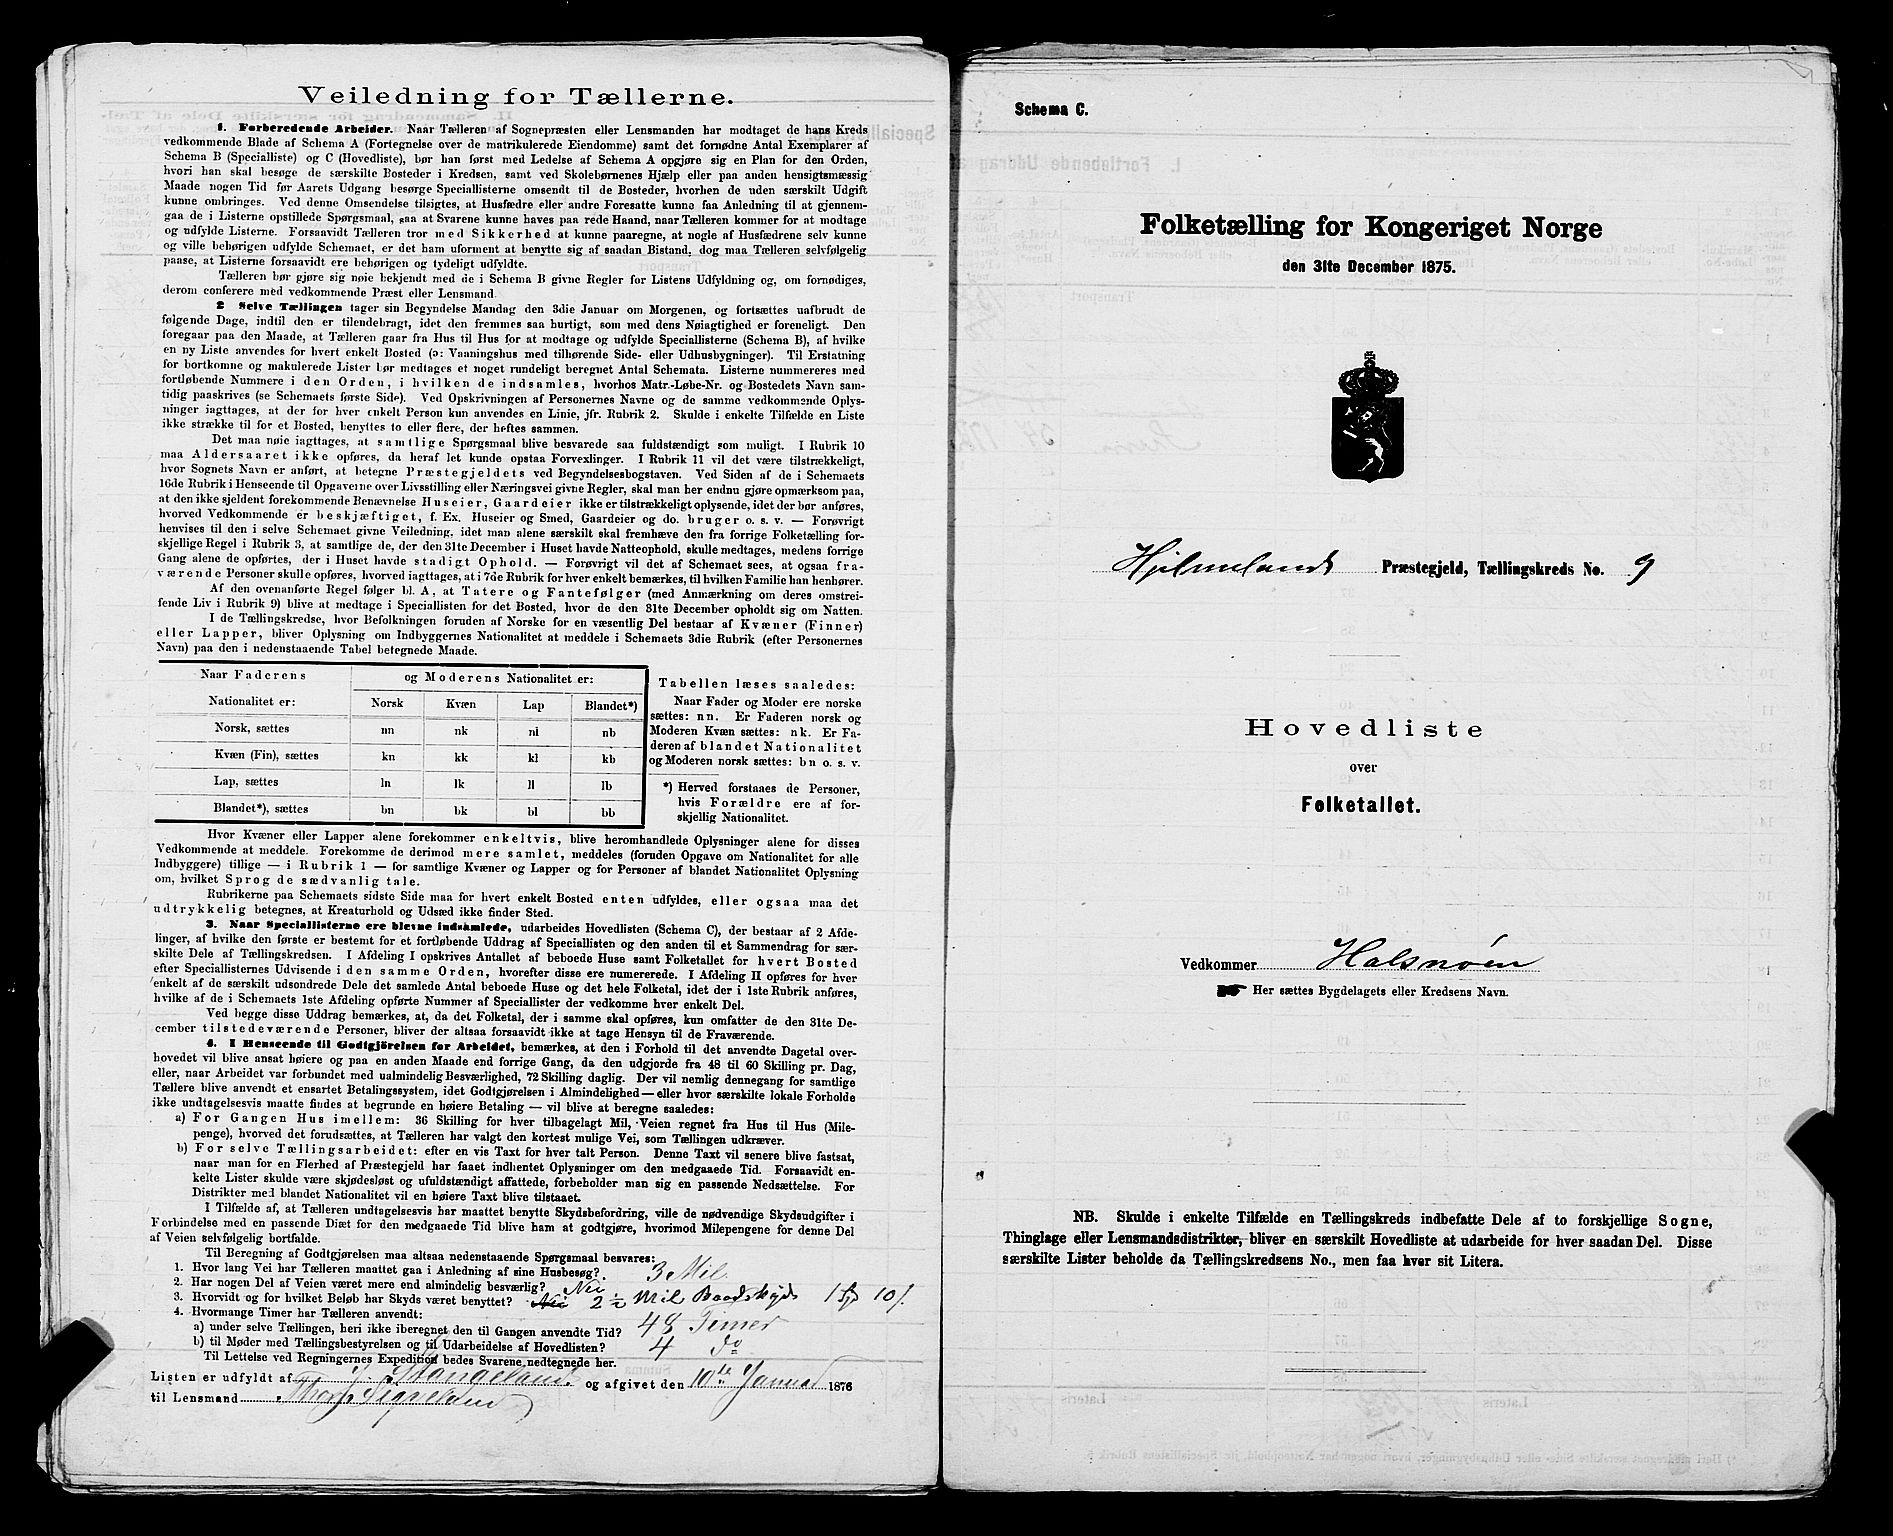 Veiledning for Tællerne.
1. Forberedende Arbeider. Naar Tælleren af Sognepræsten eller Lensmanden har modtaget de hans Kreds
vedkommende Blade af Schema A (Fortegnelse over de matrikulerede Eiendomme) samt det fornødne Antal Exemplarer af
Schema B (Specialliste) og C (Hovedliste), bør han først med Ledelse af Schema A opgjøre sig en Plan for den Orden,
hvori han skal besøge de særskilte Bosteder i Kredsen, samt ved Skolebørnenes Hjælp eller paa anden hensigtsmæssig
Maade nogen Tid før Aarets Udgang besørge Speciallisterne omsendt til de Bosteder, hvorhen de uden særskilt Udgift
kunne ombringes. Ved denne Omsendelse tilsigtes, at Husfædre eller andre Foresatte kunne faa Anledning til at gjennem-
gaa de i Listerne opstillede Spørgsmaal, saa at Svarene kunne haves paa rede Haand, naar Tælleren kommer for at modtage
og udfylde Listerne. Forsaavidt Tælleren tror med Sikkerhed at kunne paaregne, at nogle af Husfædrene selv kunne
og ville behørigen udfylde Schemaet, er det ham uforment at benytte sig af saadan Bistand, dog maa Tælleren selvfølgelig
paase, at Listerne forsaavidt ere behørigen og tydeligt udfyldte.
Tælleren bør gjøre sig nøie bekjendt med de i Schema B givne Regler for Listens Udfyldning og, om fornødiges,
derom conferere med vedkommende Præst eller Lensmand.
2 Selve Tællingen tager sin Begyndelse Mandag den 3die Januar om Morgenen, og fortsættes uafbrudt de
følgende Dage, indtil den er tilendebragt, idet den fremmes saa hurtigt, som med dens Nøiagtighed er foreneligt. Den
foregaar paa den Maade, at Tælleren gaar fra Hus til Hus for at modtage og udfylde Speciallisterne (Schema B), af hvilke
en ny Liste anvendes for hvert enkelt Bosted (ɔ: Vaaningshus med tilhørende Side- eller Udhusbygninger). Til Erstatning
for bortkomne og makulerede Lister bør medtages et noget rundeligt beregnet Antal Schemata. Listerne nummereres med
fortløbende Nummere i den Orden, i hvilken de indsamles, hvorhos Matr.-Løbe-Nr. og Bostedets Navn sam-
tidig paaskrives (se Schemaets første Side). Ved Opskrivningen af Personernes Navne og de samme vedkommende Oplys-
ninger iagttages, at der for hver enkelt Person kun anvendes en Linie, jfr. Rubrik 2. Skulde i enkelte Tilfælde en Liste
ikke strække til for et Bosted, benyttes to eller flere, der heftes sammen.
Det maa nøie iagttages, at samtlige Spørgsmaal blive besvarede saa fuldstændigt som muligt. I Rubrik 10
maa Aldersaaret ikke opføres, da heraf let kunde opstaa Forvexlinger. I Rubrik 11 vil det være tilstrækkeligt,
hvor Sognets Navn er anført, at betegne Præstegjeldets ved Begyndelsesbogstaven. Ved Siden af de i Schemaets
16de Rubrik i Henseende til Opgaverne over Livsstilling eller Næringsvei givne Regler, skal man her endnu gjøre opmærksom paa,
at den ikke sjeldent forekommende Benævnelse Huseier, Gaardeier ikke er tilstrækkeligt oplysende, idet der bør anføres,
hvorved Vedkommende er beskjæftiget, f. Ex. Huseier og Smed, Gaardeier og do. bruger o. s. v. — Forøvrigt
henvises til den i selve Schemaet givne Veiledning, idet man alene særskilt skal fremhæve den fra forrige Folketælling for-
skjellige Regel i Rubrik 3, at samtlige de, der den 31te December i Huset havde Natteophold, skulle medtages, medens forrige
Gang alene de opførtes, der i Huset havde stadigt Ophold. — Forøvrigt vil det af Schemaet sees, at ogsaa fra-
værende Personer skulle opføres, hvorved iagttages, at i 7de Rubrik for hver enkelt bemærkes, til hvilken Familie han henhører.
Af den ovenanførte Regel følger bl. A, at Tatere og Fantefølger (med Anmærkning om deres omstrei-
fende Liv i Rubrik 9) blive at medtage i Speciallisten for det Bosted, hvor de den 31te December opholdt sig om Natten.
I de Tællingskredse, hvor Befolkningen foruden af Norske for en væsentlig Del bestaar af Kvæner (Finner)
eller Lapper, bliver Oplysning om Indbyggernes Nationalitet at meddele i Schemaets 3die Rubrik (efter Personernes
Navn) paa den i nedenstaaende Tabel betegnede Maade.
Naar Faderens og Moderens Nationalitet er:
Nationalitet er: Norsk Kvæn Lap Blandet*)
Norsk, sættes nn nk nl nb
Kvæn (Fin), sættes kn kk kl kb
Lap, sættes ln lk ll lb
Blandet*), sættes bn bk bl bb
Tabellen læses saaledes:
Naar Fader og Moder ere norske
sættes: nn. Er Faderen norsk og
Moderen Kvæn sættes: nk. Er Fa-
deren af blandet Nationalitet
og Moderen norsk sættes: bn o. s. v.
*) Herved forstaaes de Personer,
hvis Forældre ere af for-
skjellig Nationalitet.
Hvor Kvæner eller Lapper alene forekommer enkeltvis, blive heromhandlede Oplysninger alene for disses
Vedkommende at meddele. Forekomme de derimod mere samlet, meddeles (foruden Opgave om Nationalitet for alle
Indbyggere) tillige — i Rubrik 1 — for samtlige Kvæner og Lapper og for Personer af blandet Nationalitet Oplysning
om, hvilket Sprog de sædvanlig tale.
Rubrikerne paa Schemaets sidste Side maa for hvert enkelt Bosted enten udfyldes, eller ogsaa maa det
udtrykkelig betegnes, at Kreaturhold og Udsæd ikke finder Sted.
3. Naar Speciallisterne ere blevne indsamlede, udarbeides Hovedlisten (Schema C), der bestaar af 2 Afde-
linger, af hvilke den første er bestemt for et fortløbende Uddrag af Speciallisten og den anden til et Sammendrag for sær-
skilte Dele af Tællingskredsen. I Afdeling I opskrives Antallet af beboede Huse samt Folketallet for hvert Bosted
efter Speciallisternes Udvisende i den samme Orden, hvorefter disse ere numererede. I Afdeling II opføres for hver
enkelt af de særskilt udsondrede Dele det samlede Antal beboede Huse og det hele Folketal, idet der i 1ste Rubrik anføres,
hvilke af de i Schemaets 1ste Afdeling opførte Nummer af Speciallister der vedkomme hver enkelt Del.
Ved begge disse Uddrag bemærkes, at, da det Folketal, der i samme skal opføres, kun omfatter de den 31te De-
cember tilstedeværende Personer, bliver der altsaa forsaavidt ikke at tage Hensyn til de Fraværende.
4. I Henseende til Godtgjörelsen for Arbeidet, bemærkes, at den i Forhold til det anvendte Dagetal over-
hovedet vil blive ansat høiere og paa en anden Maade end forrige Gang, da den udgjorde fra 48 til 60 Skilling pr. Dag,
eller, naar Arbeidet var forbundet med ualmindelig Besværlighed, 72 Skilling daglig. Der vil nemlig dennegang for samtlige
Tællere blive anvendt et ensartet Betalingssystem, idet Godtgjørelsen i Almindelighed — eller hvor særskilte lokale Forholde
ikke undtagelsesvis maatte findes at begrunde en høiere Betaling — vil blive at beregne saaledes:
a) For Gangen Hus imellem: 36 Skilling for hver tilbagelagt Mil, Veien regnet fra Hus til Hus (Mile-
penge), hvorved det forudsættes, at Tælleren har valgt den kortest mulige Vei, som Tællingen udkræver.
b) For selve Tællingsarbeidet: efter en vis Taxt for hver talt Person. Denne Taxt vil senere blive fastsat,
naar man for en Flerhed af Præstegjeld har faaet indhentet Oplysninger om den medgaaede Tid. Forsaavidt en-
kelte Lister skulde være skjødesløst og ufuldstændigt affattede, forbeholder man sig en passende Nedsættelse. For
Distrikter med blandet Nationalitet vil en høiere Taxt blive tilstaaet.
I Tilfælde af, at Tælleren undtagelsesvis har maattet benytte Skydsbefordring, ville de nødvendige Skydsudgifter i
Forbindelse med en passende Diæt for den medgaaede Tid blive ham at godtgjøre, hvorimod Milepengene for denne Del
af Veien selvfølgelig bortfalde.
Til Beregning af Godtgjørelsen maa altsaa nedenstaaende Spørgsmaal besvares:
1. Hvor lang Vei har Tælleren maattet gaa i Anledning af sine Husbesøg? 3 Mil.
2. Har nogen Del af Veien været mere end almindelig besværlig? Nei
3. Hvorvidt og for hvilket Beløb har Skyds været benyttet? Nei 2 ½ Mil Baadskyds 1 Sp 10 s.
4. Hvormange Timer har Tælleren anvendt:
a) under selve Tællingen, heri ikke iberegnet den til Gangen anvendte Tid? 48 Timer
b) til Møder med Tællingsbestyrelsen og til Udarbeidelse af Hovedlisten? 4 do
Til Lettelse ved Regningernes Expedition bedes Svarene nedtegnede her.
Listen er udfyldt af Stangeland og afgivet den 10de Januar 1876
til Lensmand
Schema C.
Folketælling for Kongeriget Norge
den 31te December 1875.
Hjelmelands Præstegjeld, Tællingskreds No. 9
Hovedliste
over
Folketallet.
Vedkommer Halsnøen
Her sættes Bygdelagets eller Kredsens Navn.
NB. Skulde i enkelte Tilfælde en Tællingskreds indbefatte Dele af to forskjellige Sogne,
Thinglage eller Lensmandsdistrikter, bliver en særskilt Hovedliste at udarbeide for hver saadan Del. Disse
særskilte Lister beholde da Tællingskredsens No., men faa hver sit Litera.